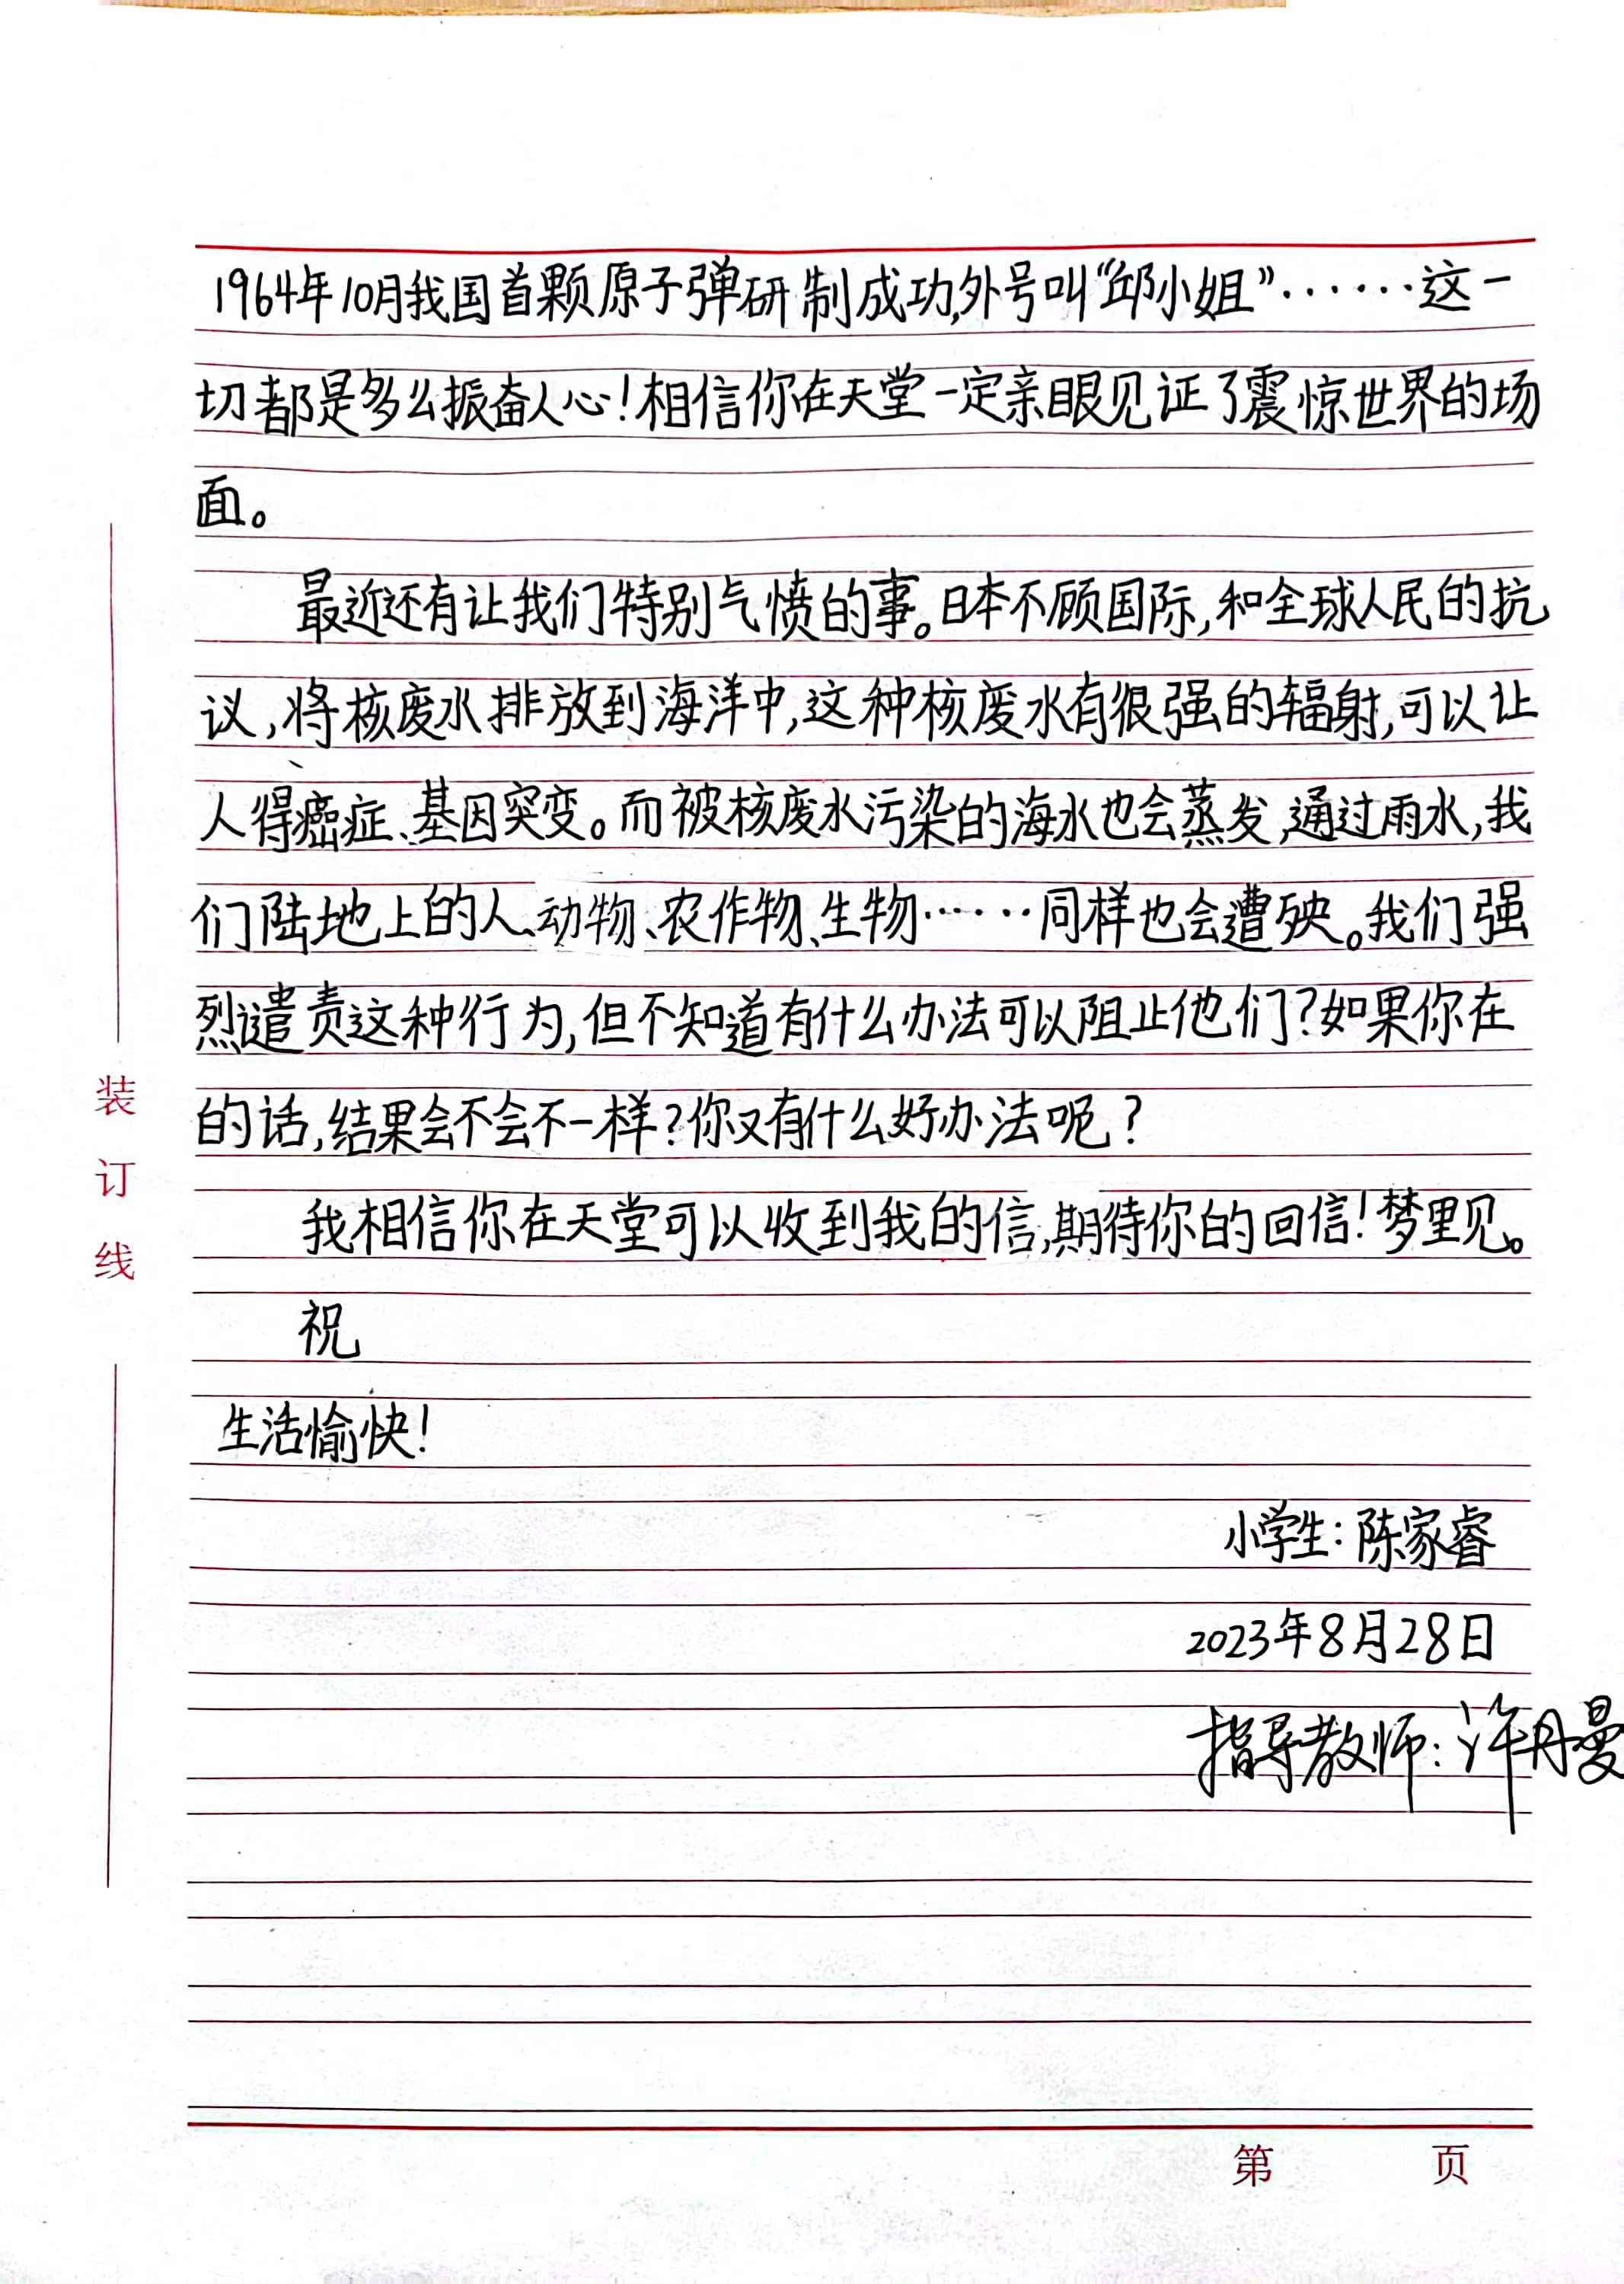 1964年10月我国首颗原子弹研制成功,外号叫“邱小姐”……这一
切都是多么振奋人心!相信你在天堂一定亲眼见证了震惊世界的场
面。
最近还有让我们特别气愤的事。日本不顾国际,和全球人民的抗
议,将核废水排放到海洋中,这种核废水有很强的辐射,可以让
人得癌症、基因突变。而被核废水污染的海水也会蒸发,通过雨水,我
们陆地上的人、动物、农作物、生物……同样也会遭殃。我们强
烈谴责这种行为,但不知道有什么办法可以阻止他们?如果你在
的话,结果会不会不一样?你又有什么好办法呢?
我相信你在天堂可以收到我的信,期待你的回信!梦里见。
祝
生活愉快!
小学生:陈家睿
2023年8月28日
指导教师:许丹曼
装订线
第 页